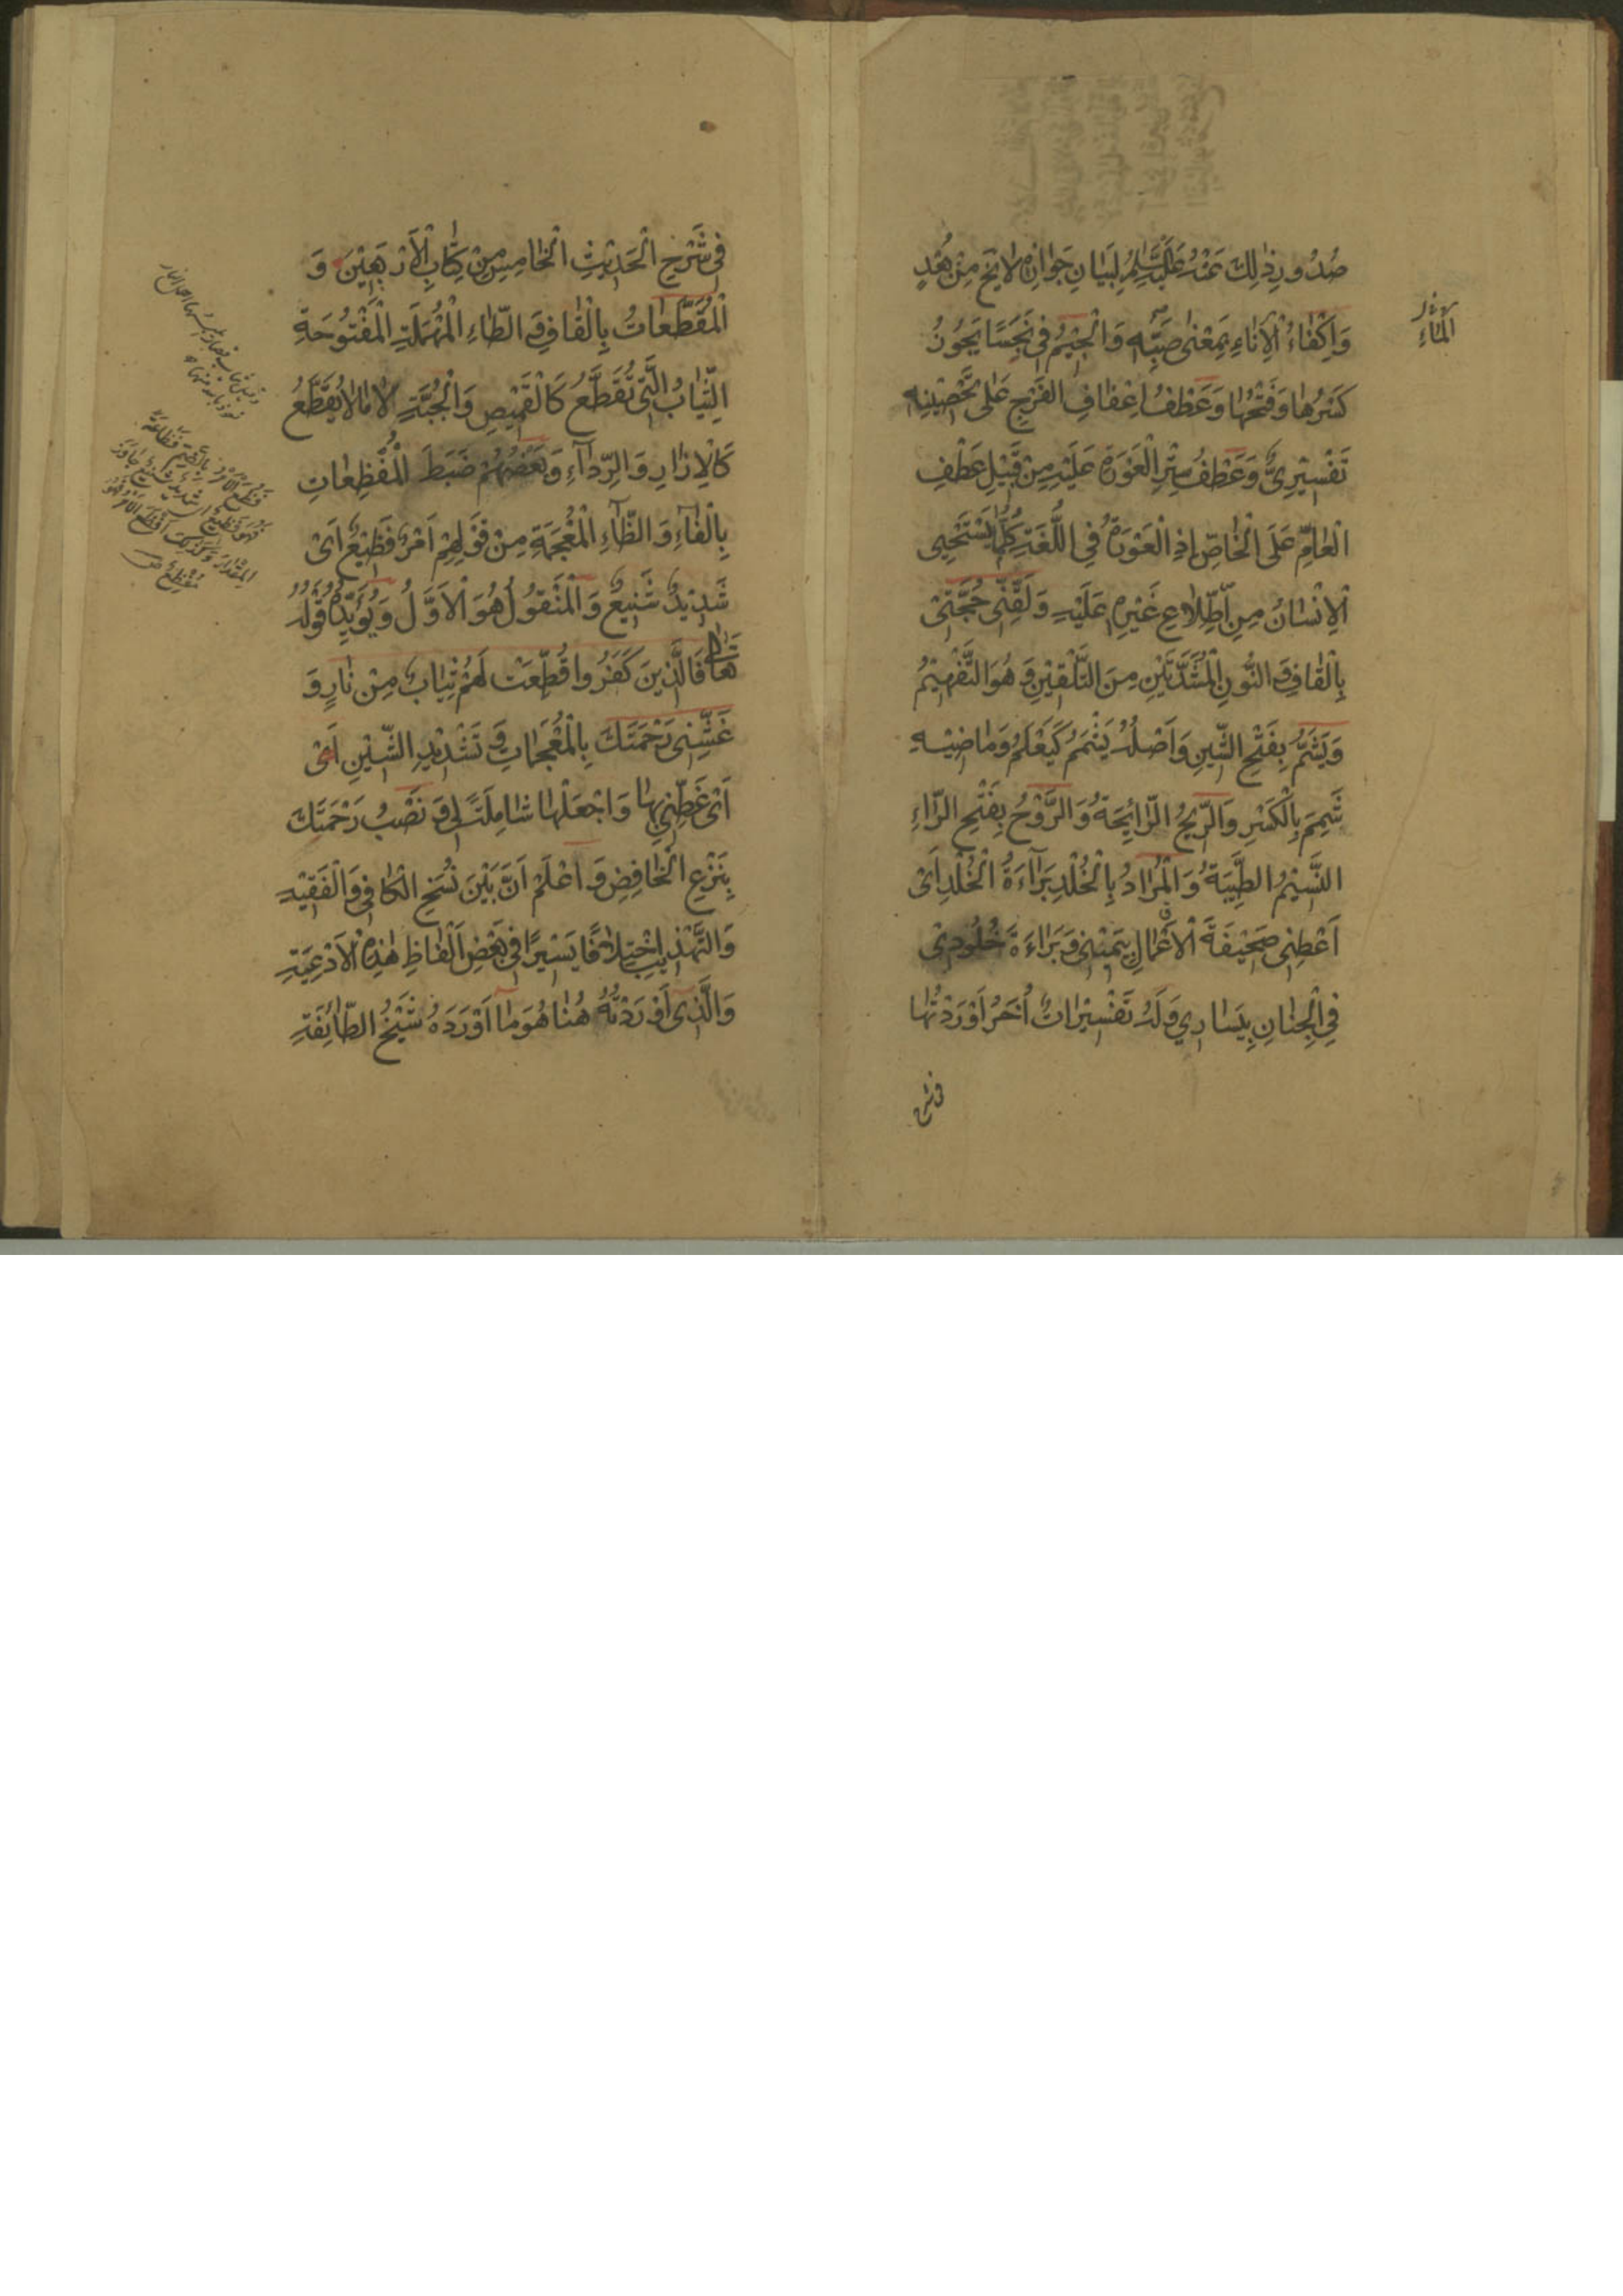 صُدُورِ ذٰلِكَ عَنْهُ عَلَيْهِ السَّلَامُ لِبَيَانِ جَوَازِهِ لَا يَخ مِنْ بُعْدٍ
وَاِكْفَاءُ الْاِنَاءِ بِمَعْنٰى صَبِّهِ وَالْجِيْمُ فِي نَجِسًا يَجُوزُ
كَسْرُهَا وَفَتْحُهَا وَعَطْفُ اِعْفَافِ الفَرْجِ عَلٰى تَحْصِيْنِهِ
تَفْسِيْرِيٌّ وَعَطْفُ سِتْرِ الْعَوْرَةِ عَلَيْهِ مِنْ قَبِيْلِ عَطْفِ
الْعَامِّ عَلَى الْخَاصِّ اِذِ الْعَوْرَةُ فِي اللُّغَةِ كُلَّمَا يَسْتَحْيِي
الْاِنْسَانُ مِنِ اطِّلَاعِ غَيْرِهِ عَلَيْهِ وَلَقِّنِّى حُجَّتِىْ
بِالْقَافِ وَالنُّونِ الْمُشَدَّدَتَيْنِ مِنَ التَّلْقِيْنِ وَهُوَ التَّفْهِيْمُ
وَيَشَمُّ بِفَتْحِ الشِّيْنِ وَاَصْلُهُ يَشْمَمُ كَيَعْلَمُ وَمَاضِيْهِ
شَمِمَ بِالْكَسْرِ وَالرِّيْحُ الرَّائِحَةُ وَالرَّوْحُ بِفَتْحِ الرَّاءِ
النَّسِيْمُ الطَّيِّبَةُ وَالْمُرَادُ بِالْخُلْدِ بَرَاءَةُ الْخُلْدِ اَىْ
اَعْطِنِى صَحِيْفَةَ الْاَعْمَالِ بِيَمِيْنِى وَبَرَاءَةَ خُلُودِىْ
فِي الْجِنَانِ بِيَسَارِي وَلَهُ تَفْسِيْرَاتٌ اُخَرُ اَوْرَدْتُهَا
المَاءِ
فى شرح
فِى شَرْحِ الْحَدِيْثِ الْخَامِسِ مِنْ كِتَابِ الْاَرْبَعِيْنَ وَ
الْمُقَطَّعَاتُ بِالْقَافِ وَالطَّاءِ الْمُهْمَلَةِ الْمَفْتُوْحَةِ
الثِّيَابُ الَّتِى تُقَطَّعُ كَالْقَمِيْصِ وَالْجُبَّةِ لَا مَا لَا يُقَطَّعُ
كَالْاِزَارِ وَالرِّدَاءِ وَبَعْضُهُمْ ضَبَطَ الْمُفْظِعَاتِ
بِالْفَاءِ وَالظَّاءِ الْمُعْجَمَةِ مِنْ قَوْلِهِمْ اَمْرٌ فَظِيْعٌ اَىْ
شَدِيْدٌ شَنِيْعٌ وَالْمَنْقُولُ هُوَ الْاَوَّلُ وَيُؤَيِّدُهُ قَوْلُهُ
تَعَالٰى فَالَّذِينَ كَفَرُوا قُطِّعَتْ لَهُمْ ثِيَابٌ مِنْ نَارٍ وَ
غَشِّنِى رَحْمَتَكَ بِالْمُعْجَمَاتِ وَتَشْدِيْدِ الشِّيْنِ اَىْ
اَىْ غَطِّنِى بِهَا وَاجْعَلْهَا شَامِلَةً لِى وَنَصْبُ رَحْمَتَكَ
بِنَزْعِ الْخَافِضِ وَاعْلَمْ اَنَّ بَيْنَ نُسَخِ الْكَافِى وَالْفَقِيْهِ
وَالتَّهْذِيبِ اِخْتِلَافًا يَسِيْرًا فِى بَعْضِ اَلْفَاظِ هٰذِهِ الْاَدْعِيَةِ
وَالَّذِى اَوْرَدْتُهُ هُنَا هُوَ مَا اَوْرَدَهُ شَيْخُ الطَّائِفَةِ
فَظُعَ الْاَمْرُ بِالضَّمِّ فَظَاعَةً
فَهُوَ فَظِيْعٌ اى شَدِيْدٌ شَنِيْعٌ جَاوَزَ
الْمِقْدَارَ وَكَذٰلِكَ اَفْظَعَ الْاَمْرُ فَهُوَ
مُفْظِعٌ ص